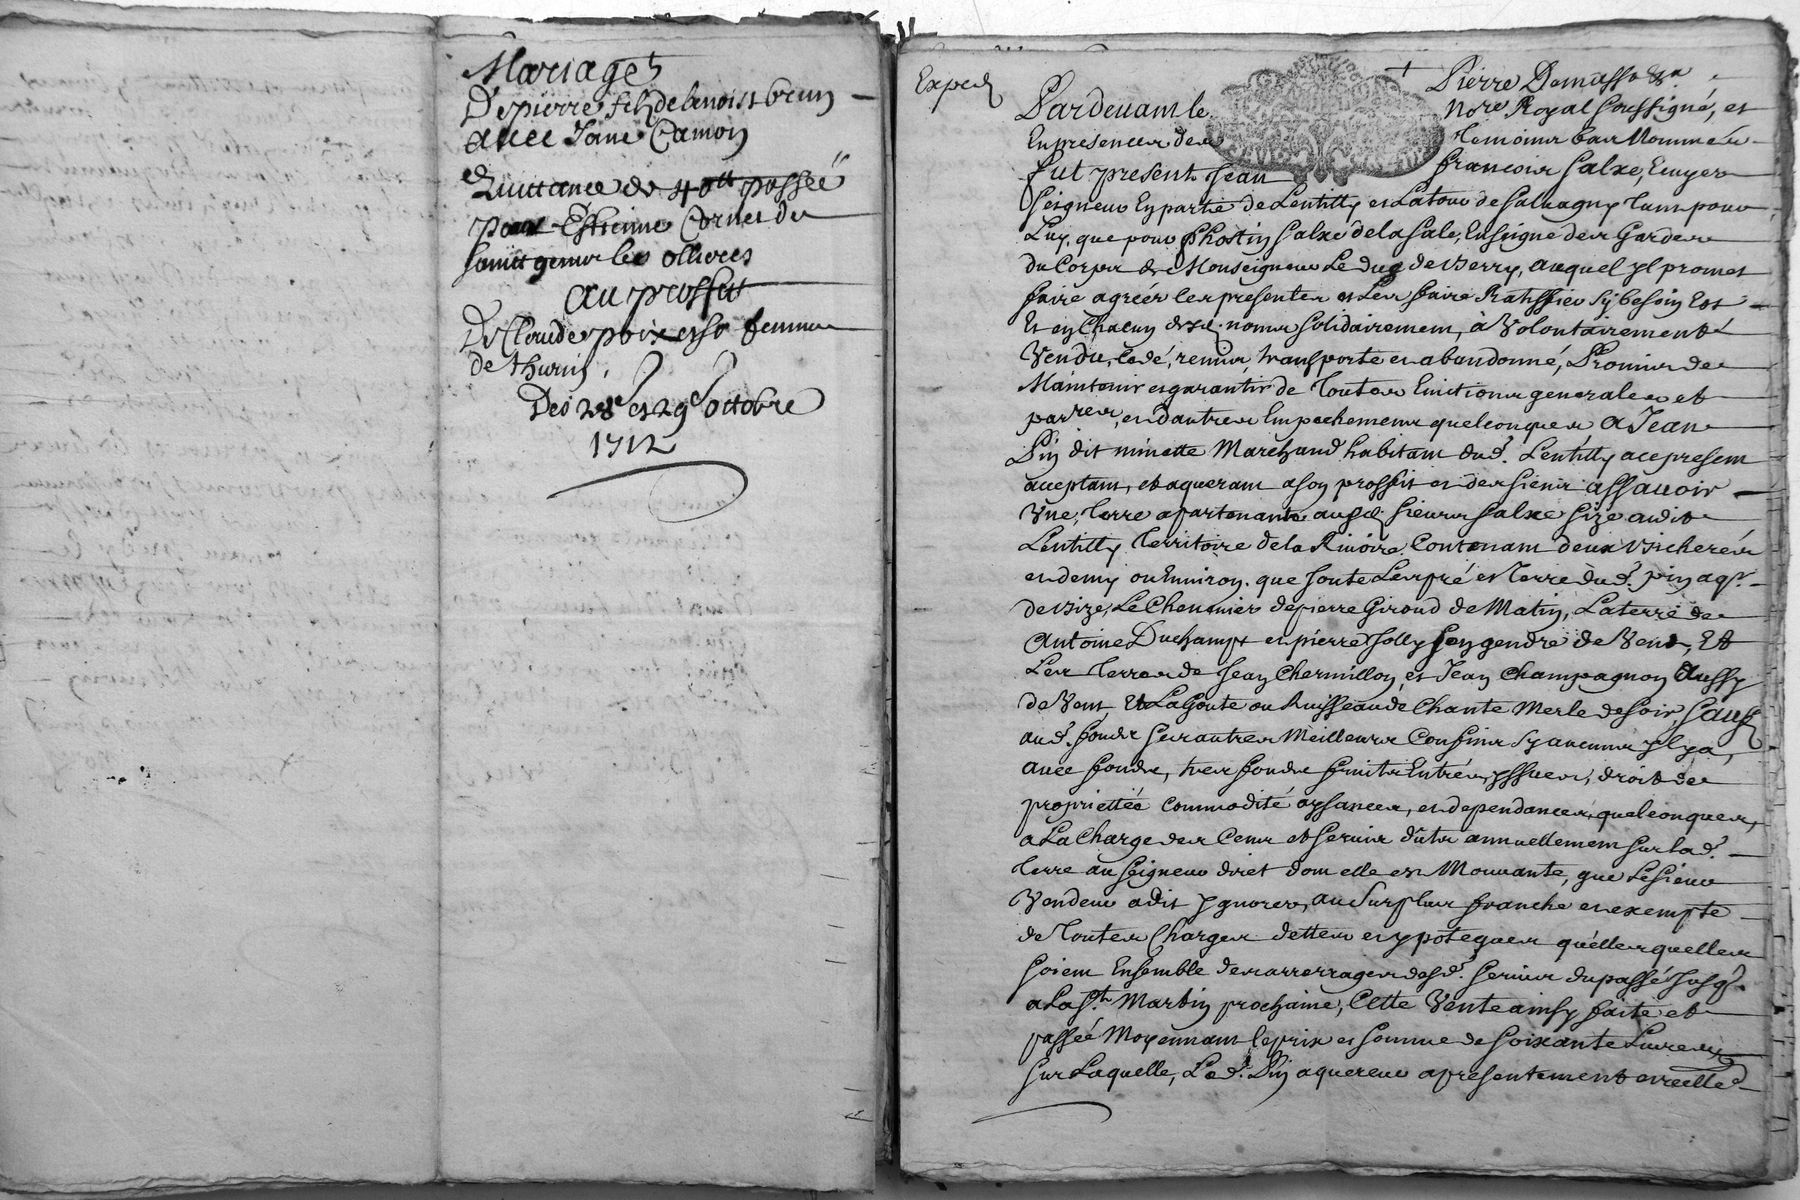 Mariage
De pierre fils de benoist brun
avec Jane Camon
Quittance de 40tt passée
pour Estienne Cornet de
sainct genis les ollieres
au proffit
De Claude poix et sa femme
de thurin,
Des 28e et 29e octobre
1712
Exped
Pardevant le Pierre Demasso &a.
nore Royal soussigné, et
En presence des temoins bas nommés
fut present Jean francois Salxe, Ecuyer
seigneur En partie de Lentilly et La tour de Salvagny tant pour
Luy, que pour Photin Salxe de la Sale, Enseigne des Gardes
du Corps de Monseigneur Le Duc de Berry, auquel yl promet
faire agréer les presentes et Les faire Ratiffier sy besoin Est
Et en Chacun desd. noms solidairement, à Volontairement
Vendu, cedé, remis, transporté et abandonné, Promis de
Maintenir et garantir de toutes Evictions generales et
parres, et d'autres Empechements quelconques A Jean
Pin dit minette Marchand habitant dud. Lentilly ace present
acceptant, et aquerant a son proffit et des siens assavoir
Vne, terre apartenante ausd. sieurs Salxe size audit
Lentilly territoire de la Rivoire. Contenant deux bicherées
et demy ou Environ. que joute Les pré et terre dud. pin aqr.
de bize, Le Chemin de pierre Giroud de Matin, La terre de
Antoine Duchamp et pierre Jolly son gendre de Vent, Et
Les terres de Jean Chermillon, et Jean Champagnon Aussy
de Vent, Et La Goute ou Ruisseau de Chante Merle de soir, sauf
aud. fonds ses autres Meilleurs Confins sy aucuns yl y a,
avec fonds, tres fonds fruits Entrées, yssues, droit de
propriettée commodité aysances, et dependances, quelconques,
a La Charge des Cens et servis dûts annuellement sur lad.
terre au seigneur diret dont elle est Mouvante, que Le sieur
Vendeur a dit Ygnorer, au surplus franche et exempte
de toutes Charges dettes et ypoteques qu'elles quelles
soient Ensemble des arrerrages desd. servis du passé Jusq.
a La St. Martin prochaine, Cette Vente ainsy faite et
passée Moyennant le prix et somme de soixante Livres
sur Laquelle, Led. Pin aquereur a presentement et réelle